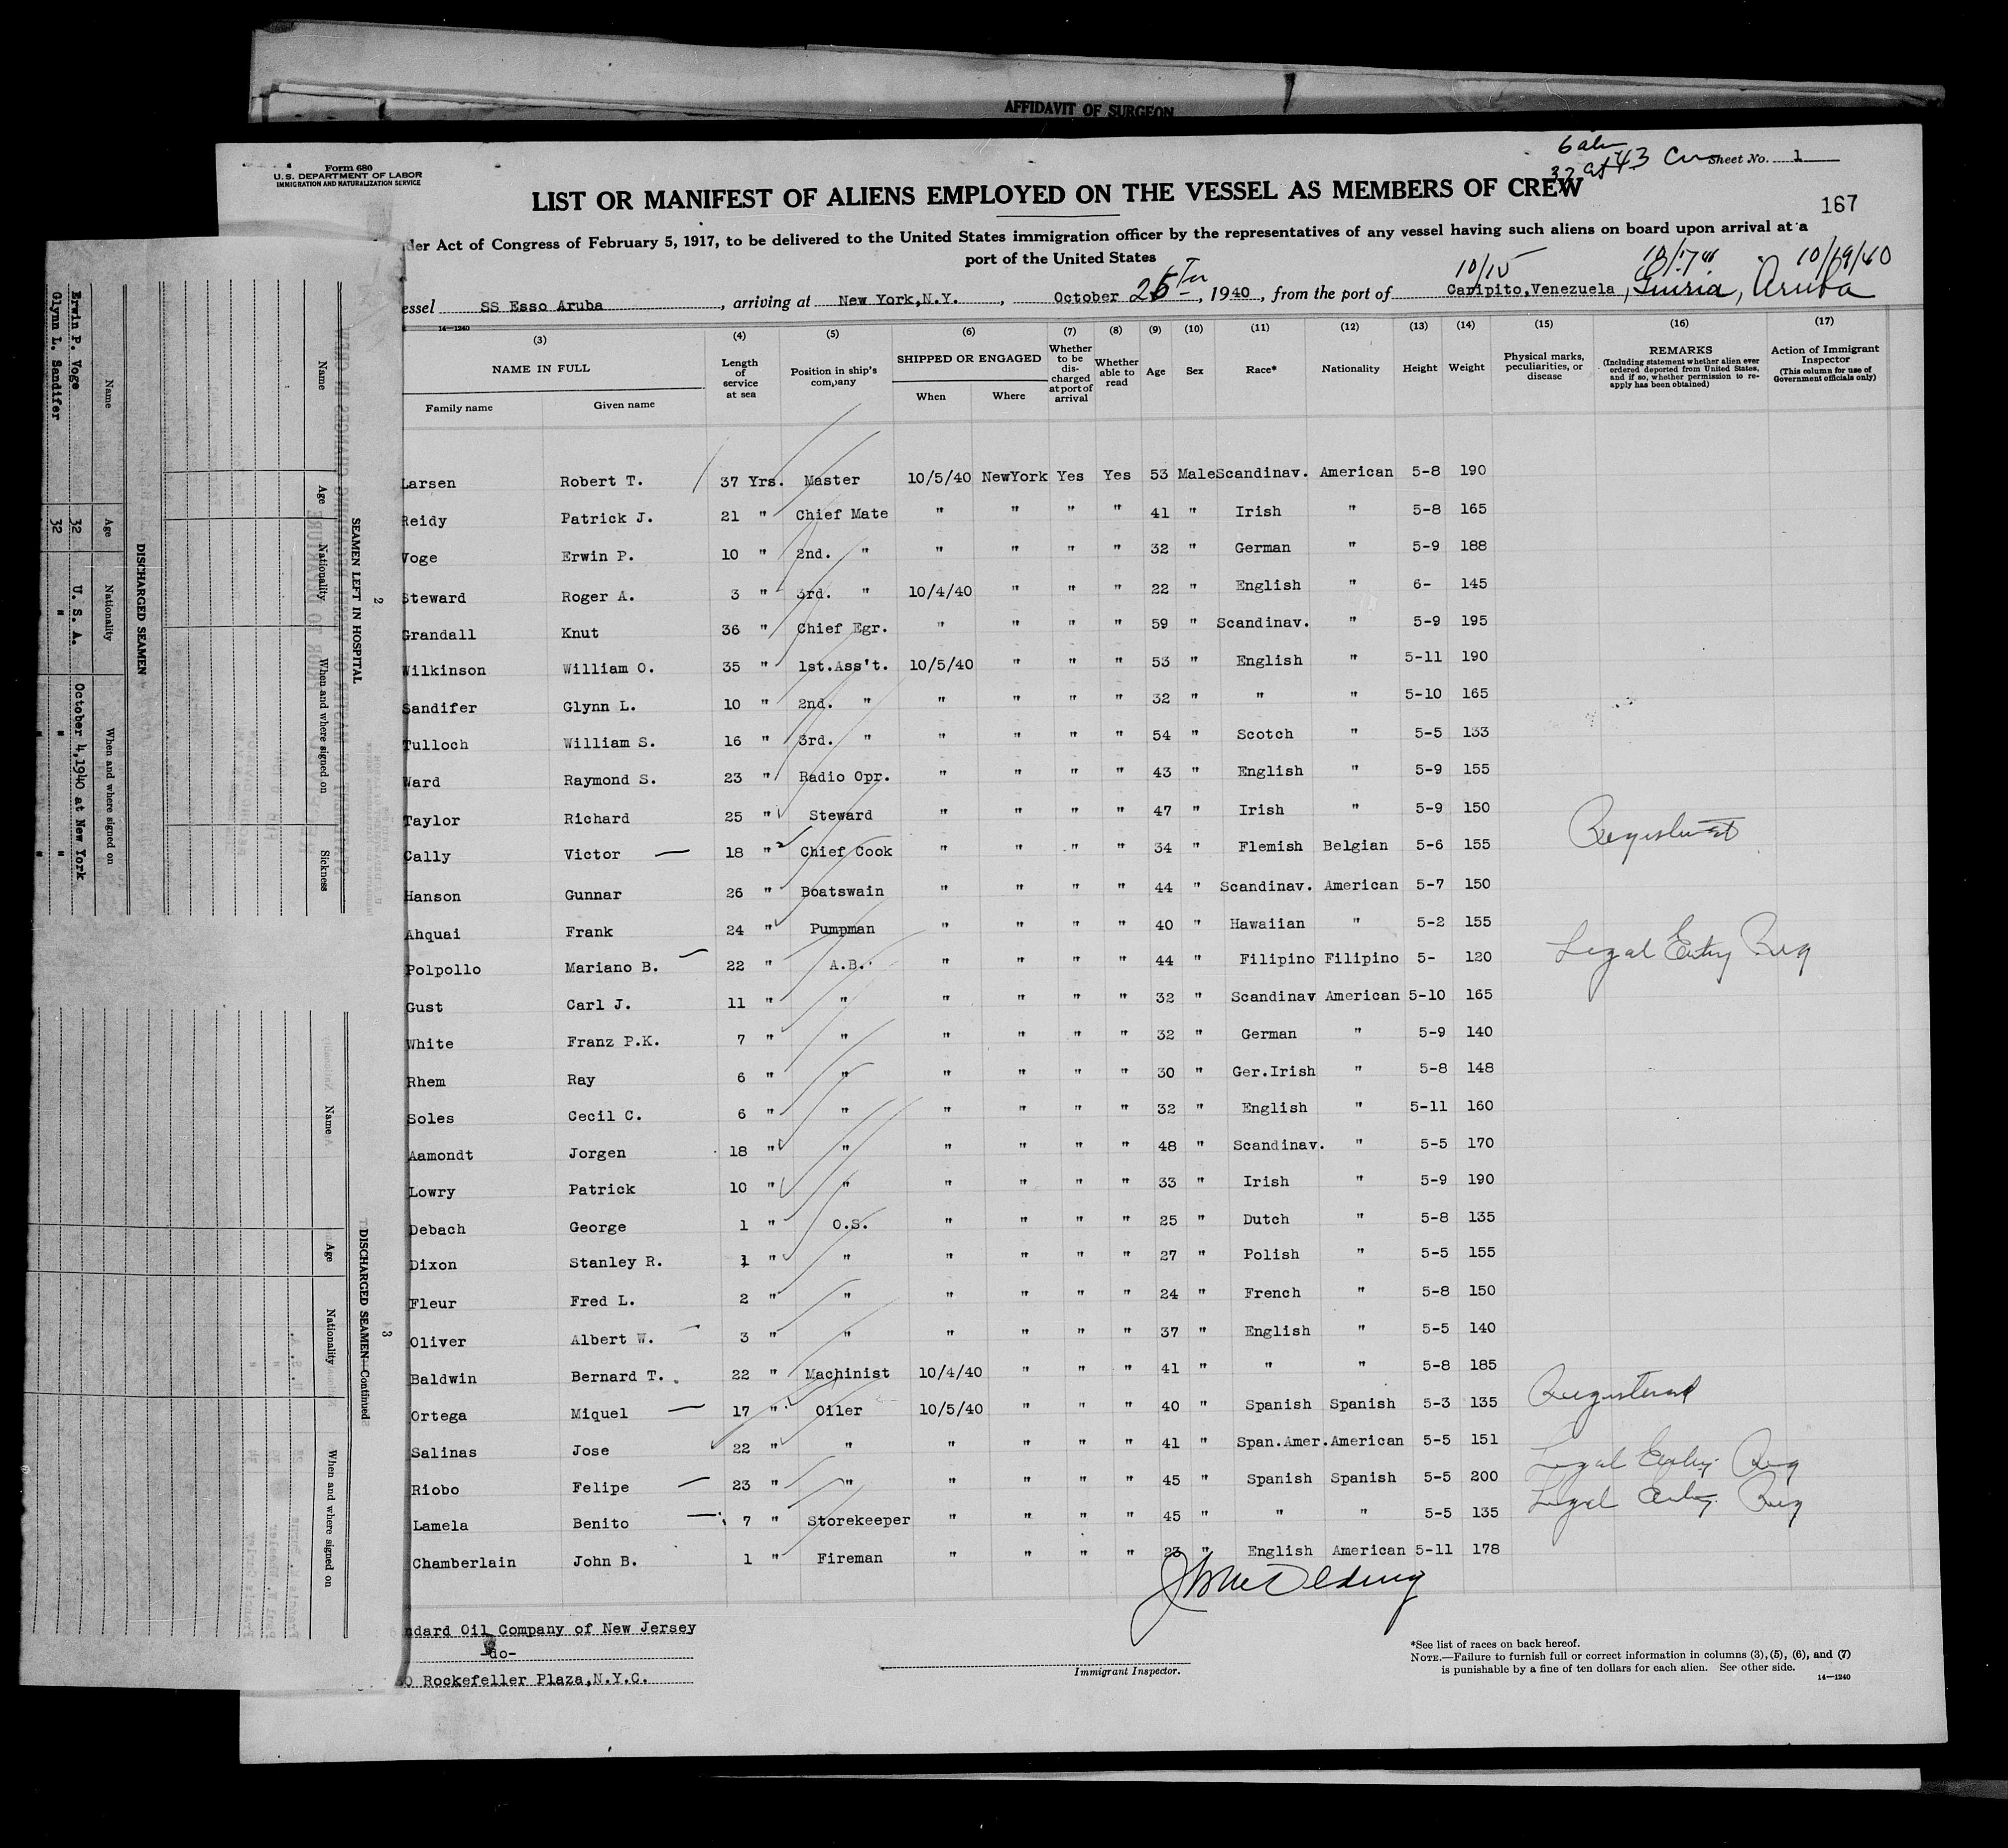 AFFIDAVIT OF SURGEON
Form 680
U. S. DEPARTMENT OF LABOR
IMMIGRATION AND NATURALIZATION SERVICE
43
Sheet No. 1
LIST OR MANIFEST OF ALIENS EMPLOYED ON THE VESSEL AS MEMBERS OF CREW
167
der Act of Congress of February 5, 1917, to be delivered to the United States immigration officer by the representatives of any vessel having such aliens on board upon arrival at a
port of the United States
10/15 10/17 10/19/40
essel SS Esso Aruba, arriving at New York,N.Y., October 25, 1940, from the port of Caripito,Venezuela, Guiria, Aruba
14—1240
(3) (4) (5) (6) (7) (8) (9) (10) (11) (12) (13) (14) (15) (16) (17)
NAME IN FULL
Family name Given name
Length of service at sea
Position in ship's company
SHIPPED OR ENGAGED
When Where
Whether to be discharged at port of arrival
Whether able to read
Age
Sex
Race*
Nationality
Height
Weight
Physical marks, peculiarities, or disease
REMARKS
(Including statement whether alien ever ordered deported from United States, and if so, whether permission to reapply has been obtained)
Action of Immigrant Inspector
(This column for use of Government officials only)
Larsen Robert T. 37 Yrs. Master 10/5/40 NewYork Yes Yes 53 Male Scandinav. American 5-8 190
Reidy Patrick J. 21 " Chief Mate " " " " 41 " Irish " 5-8 165
Voge Erwin P. 10 " 2nd. " " " " " 32 " German " 5-9 188
Steward Roger A. 3 " 3rd. " 10/4/40 " " " 22 " English " 6- 145
Grandall Knut 36 " Chief Egr. " " " " 59 " Scandinav. " 5-9 195
Wilkinson William O. 35 " 1st.Ass't. 10/5/40 " " " 53 " English " 5-11 190
Sandifer Glynn L. 10 " 2nd. " " " " " 32 " " " 5-10 165
Tulloch William S. 16 " 3rd. " " " " " 54 " Scotch " 5-5 133
Ward Raymond S. 23 " Radio Opr. " " " " 43 " English " 5-9 155
Taylor Richard 25 " Steward " " " " 47 " Irish " 5-9 150
Cally Victor — 18 " Chief Cook " " " " 34 " Flemish Belgian 5-6 155 Registered
Hanson Gunnar 26 " Boatswain " " " " 44 " Scandinav. American 5-7 150
Ahquai Frank 24 " Pumpman " " " " 40 " Hawaiian " 5-2 155
Polpollo Mariano B. — 22 " A.B. " " " " 44 " Filipino Filipino 5- 120 Legal Entry Reg
Gust Carl J. 11 " " " " " " 32 " Scandinav American 5-10 165
White Franz P.K. 7 " " " " " " 32 " German " 5-9 140
Rhem Ray 6 " " " " " " 30 " Ger.Irish " 5-8 148
Soles Cecil C. 6 " " " " " " 32 " English " 5-11 160
Aamondt Jorgen 18 " " " " " " 48 " Scandinav. " 5-5 170
Lowry Patrick 10 " " " " " " 33 " Irish " 5-9 190
Debach George 1 " O.S. " " " " 25 " Dutch " 5-8 135
Dixon Stanley R. 1 " " " " " " 27 " Polish " 5-5 155
Fleur Fred L. 2 " " " " " " 24 " French " 5-8 150
Oliver Albert W. 3 " " " " " " 37 " English " 5-5 140
Baldwin Bernard T. 22 " Machinist 10/4/40 " " " 41 " " " 5-8 185
Ortega Miquel — 17 " Oiler 10/5/40 " " " 40 " Spanish Spanish 5-3 135 Registered
Salinas Jose 22 " " " " " " 41 " Span.Amer. American 5-5 151
Riobo Felipe — 23 " " " " " " 45 " Spanish Spanish 5-5 200 Legal Entry Reg
Lamela Benito — 7 " Storekeeper " " " " 45 " " " 5-5 135 Legal Entry Reg
Chamberlain John B. 1 " Fireman " " " " 23 " English American 5-11 178
ndard Oil Company of New Jersey
do-
0 Rockefeller Plaza,N.Y.C.
Immigrant Inspector.
*See list of races on back hereof.
NOTE.—Failure to furnish full or correct information in columns (3), (5), (6), and (7)
is punishable by a fine of ten dollars for each alien. See other side.
14—1240
2
SEAMEN LEFT IN HOSPITAL
Name Age Nationality When and where signed on Sickness
DISCHARGED SEAMEN
Name Age Nationality When and where signed on
Erwin P. Voge 32 U. S. A. October 4,1940 at New York
Glynn L. Sandifer 32 " " "
3
DISCHARGED SEAMEN—Continued
Name Age Nationality When and where signed on